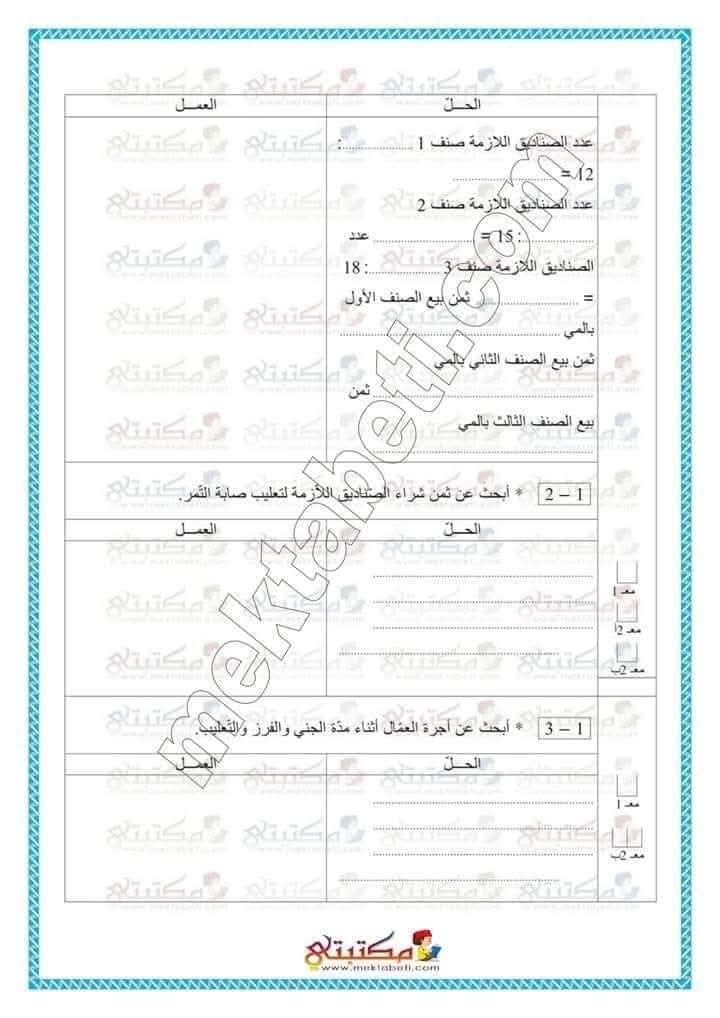 الحـــل
العمـــل
عدد الصناديق اللازمة صنف 1 ....................:
12 = ............................
عدد الصناديق اللازمة صنف 2
....................: 15 = ............................ عدد
الصناديق اللازمة صنف 3 ....................: 18
= ............................ ثمن بيع الصنف الأول
بالمي ............................................................
ثمن بيع الصنف الثاني بالمي
............................................................ ثمن
بيع الصنف الثالث بالمي
............................................................
1 – 2 * أبحث عن ثمن شراء الصناديق اللازمة لتعليب صابة التّمر.
الحـــلّ
العمـــل
............................................................
............................................................
............................................................
............................................................
معـ 1
معـ 2أ
معـ 2ب
1 – 3 * أبحث عن أجرة العمّال أثناء مدّة الجني والفرز والتّعليب.
الحـــلّ
العمـــل
............................................................
............................................................
............................................................
............................................................
معـ 1
معـ 2ب
mektabeti.com
مكتبتي
www.mektabeti.com